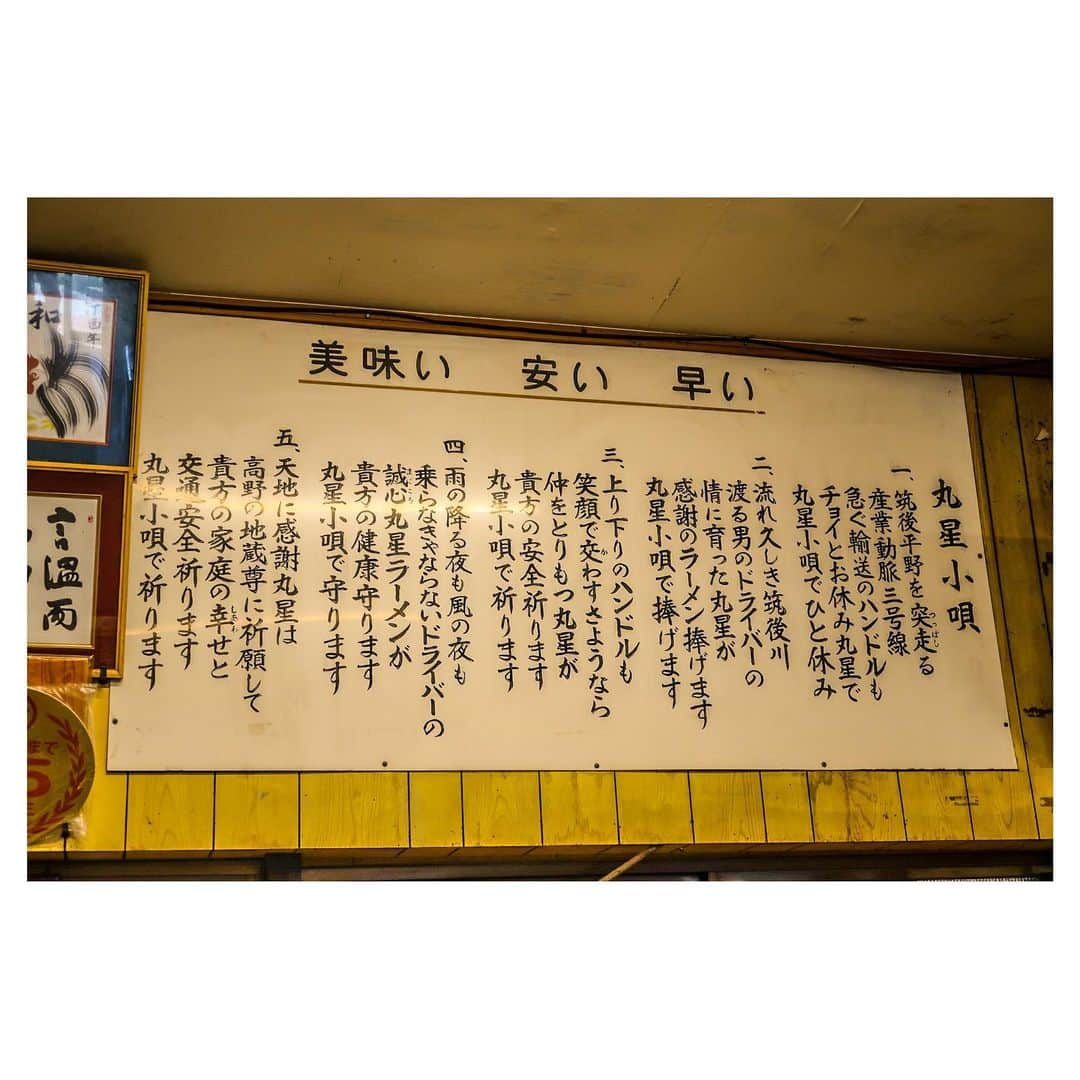 美味い 安い 早い
丸星小唄
一、筑後平野を突走る
つっぱし
産業動脈三号線
急ぐ輸送のハンドルも
チョイとお休み丸星で
丸星小唄でひと休み
二、流れ久しき筑後川
渡る男のドライバーの
情に育った丸星が
感謝のラーメン捧げます
丸星小唄で捧げます
三、上り下りのハンドルも
笑顔で交わすさようなら
か
仲をとりもつ丸星が
貴方の安全祈ります
丸星小唄で祈ります
四、雨の降る夜も風の夜も
乗らなきゃならないドライバーの
誠心丸星ラーメンが
貴方の健康守ります
丸星小唄で守ります
五、天地に感謝丸星は
高野の地蔵尊に祈願して
貴方の家庭の幸せと
交通安全祈ります
丸星小唄で祈ります
丁酉年
和